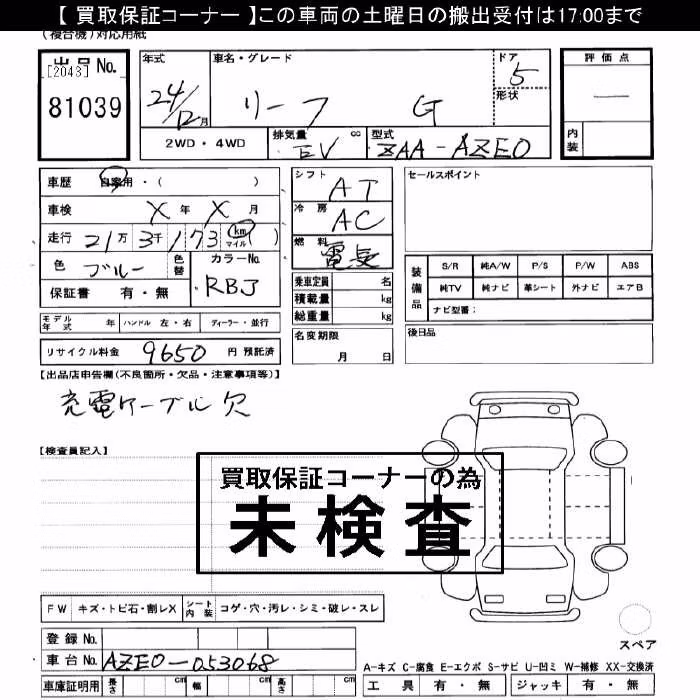 【 買取保証コーナー 】この車両の土曜日の搬出受付は17:00まで
(複合機) 対応用紙
出品 No.
[2043]
81039
年式
24/12月
車名・グレード
リーフ G
ドア
5
形状
評価点
—
内装
2WD・4WD
排気量
EV cc
型式
ZAA-AZE0
車歴 自家用・( )
車検 X年 X月
走行 21万 3千 173 km マイル ( )
色 ブルー 色替
カラーNo.
RBJ
保証書 有・無
シフト
AT
冷房
AC
燃料
電気
乗車定員 名
積載量 kg
総重量 kg
セールスポイント
装備品
S/R 純A/W P/S P/W ABS
純TV 純ナビ 革シート 外ナビ エアB
ナビ型番:
モデル年式 年 ハンドル 左・右 ディーラー・並行
名変期限
月 日
後日品
リサイクル料金 9650 円 預託済
【出品店申告欄(不良箇所・欠品・注意事項等)】
充電ケーブル欠
【検査員記入】
買取保証コーナーの為
未検査
FW キズ・トビ石・割レX シート内装 コゲ・穴・汚レ・シミ・破レ・スレ
スペア
登録 No.
車台 No. AZE0-053068
A-キズ C-腐食 E-エクボ S-サビ U-凹ミ W-補修 XX-交換済
車庫証明用 長さ cm 幅 cm 高さ cm
工具 有・無 ジャッキ 有・無